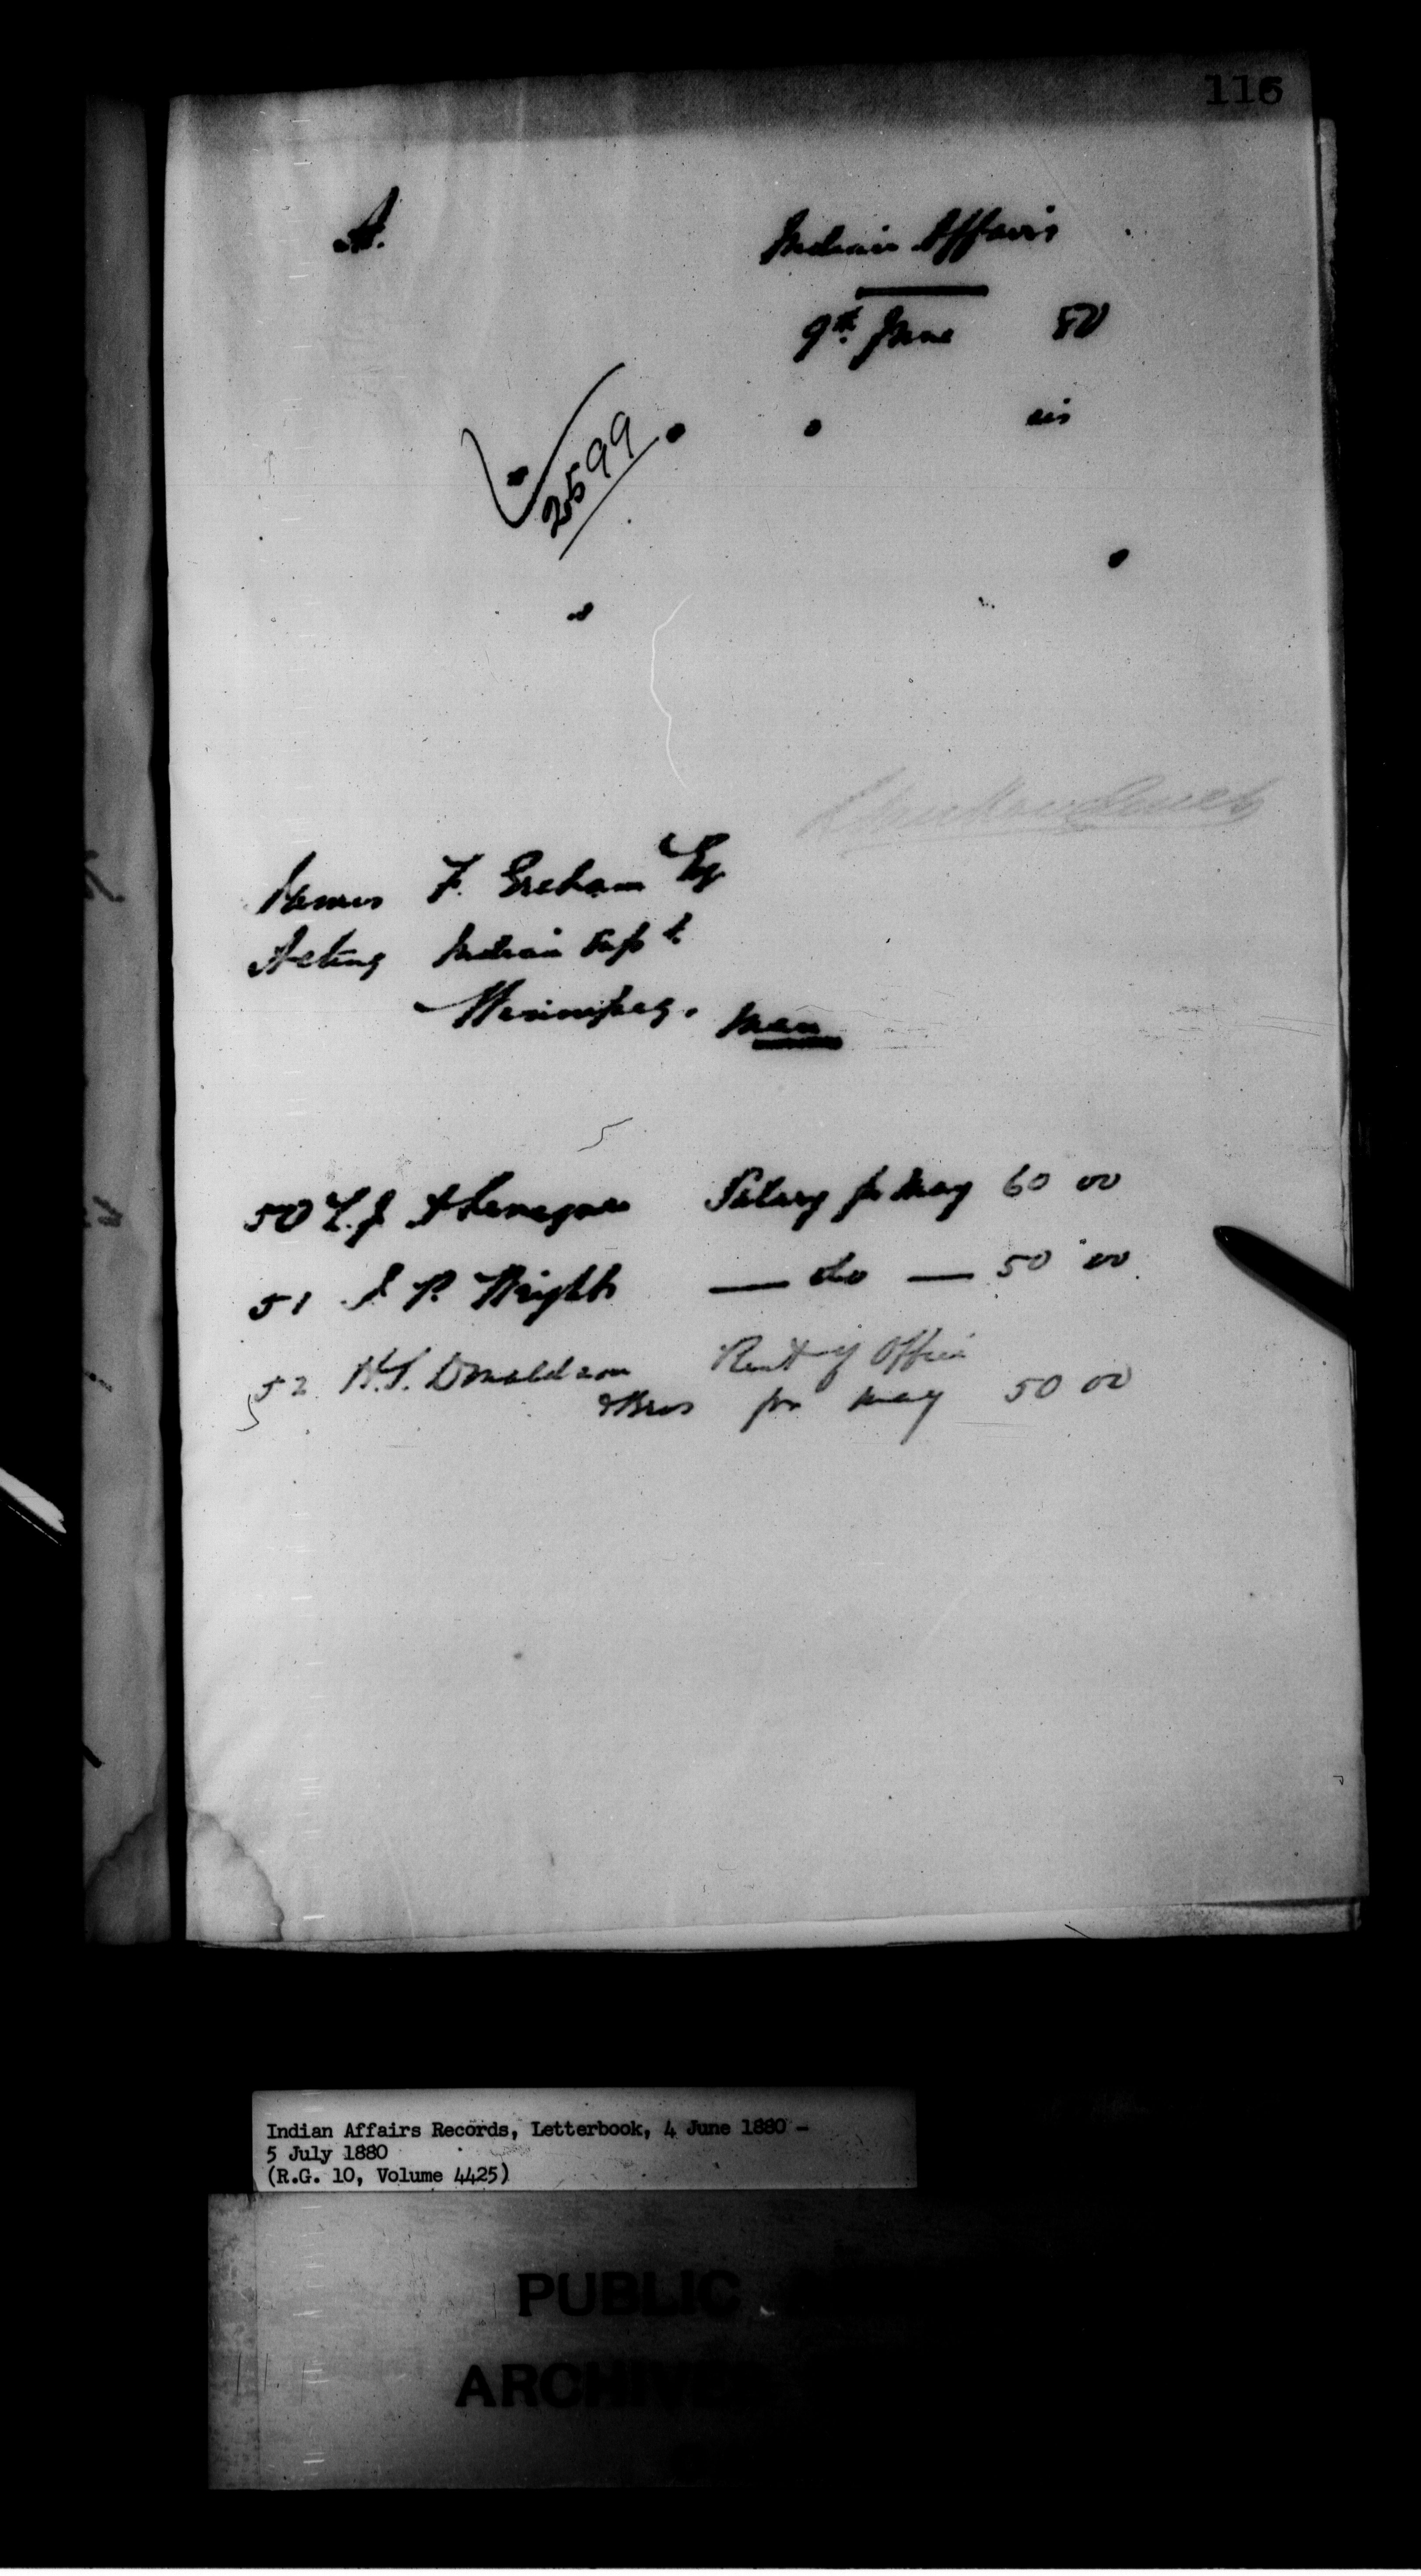 116
A.
Indian Affairs
9th June 80
2599
James F. Graham Esq
Acting Indian Supt.
Winnipeg. Man
50 L. J. A. Salary for May 60 00
51 S. P. Wright — do — 50 00
52 H. S. Donaldson Rent of Office
& Bros for May 50 00
Indian Affairs Records, Letterbook, 4 June 1880 -
5 July 1880
(R.G. 10, Volume 4425)
PUBLIC
ARCHIVES